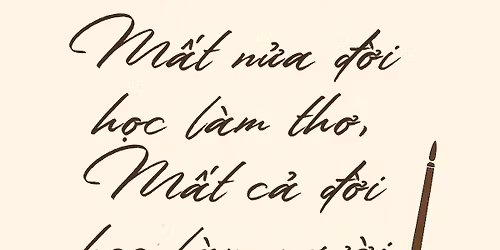 Mất nửa đời
học làm thơ,
Mất cả đời